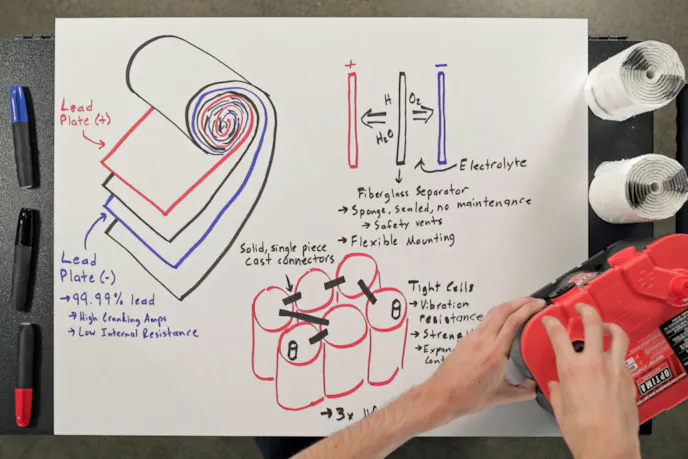 Lead
Plate (+)
Lead
Plate (-)
→ 99.99% lead
→ High Cranking Amps
→ Low Internal Resistance
+
-
H
O₂
H₂O
Electrolyte
Fiberglass Separator
→ Sponge, sealed, no maintenance
→ Safety vents
→ Flexible Mounting
Solid, single piece
cast connectors
Tight Cells
→ Vibration
resistance
→ 3x
OPTIMA